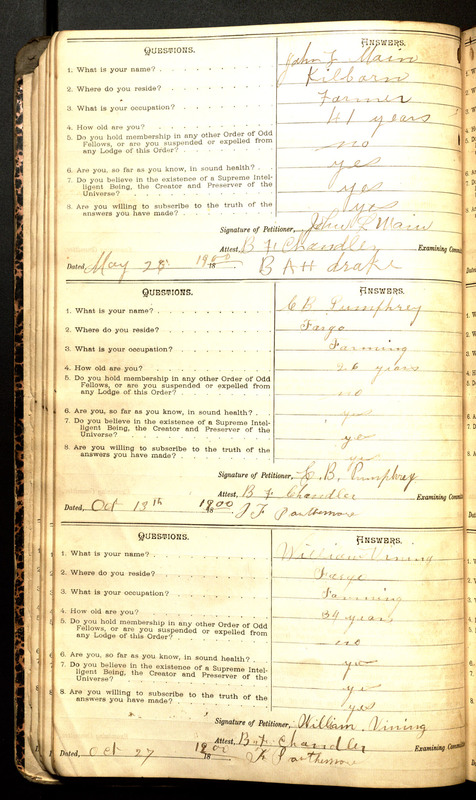 QUESTIONS. ANSWERS.
1. What is your name? John L Main
2. Where do you reside? Kilborn
3. What is your occupation? Farmer
4. How old are you? 41 years
5. Do you hold membership in any other Order of Odd
Fellows, or are you suspended or expelled from
any Lodge of this Order? no
6. Are you, so far as you know, in sound health? yes
7. Do you believe in the existence of a Supreme Intel-
ligent Being, the Creator and Preserver of the
Universe? yes
8. Are you willing to subscribe to the truth of the
answers you have made? yes
Signature of Petitioner, John L Main
Attest, B F Chandler Examining
Dated, May 28 1900 B A H drake
QUESTIONS. ANSWERS.
1. What is your name? C B Pumphrey
2. Where do you reside? Fargo
3. What is your occupation? Farming
4. How old are you? 26 years
5. Do you hold membership in any other Order of Odd
Fellows, or are you suspended or expelled from
any Lodge of this Order? no
6. Are you, so far as you know, in sound health? yes
7. Do you believe in the existence of a Supreme Intel-
ligent Being, the Creator and Preserver of the
Universe? ye
8. Are you willing to subscribe to the truth of the
answers you have made? ye
Signature of Petitioner, C. B. Pumphrey
Attest, B F Chandler Examining
Dated, Oct 13th 1900 J F Parthemore
QUESTIONS. ANSWERS.
1. What is your name? William Vining
2. Where do you reside? Fargo
3. What is your occupation? Farming
4. How old are you? 34 years
5. Do you hold membership in any other Order of Odd
Fellows, or are you suspended or expelled from
any Lodge of this Order? no
6. Are you, so far as you know, in sound health? ye
7. Do you believe in the existence of a Supreme Intel-
ligent Being, the Creator and Preserver of the
Universe? ye
8. Are you willing to subscribe to the truth of the
answers you have made? yes
Signature of Petitioner, William Vining
Attest, B F Chandler Examining
Dated, Oct 27 F Parthemore